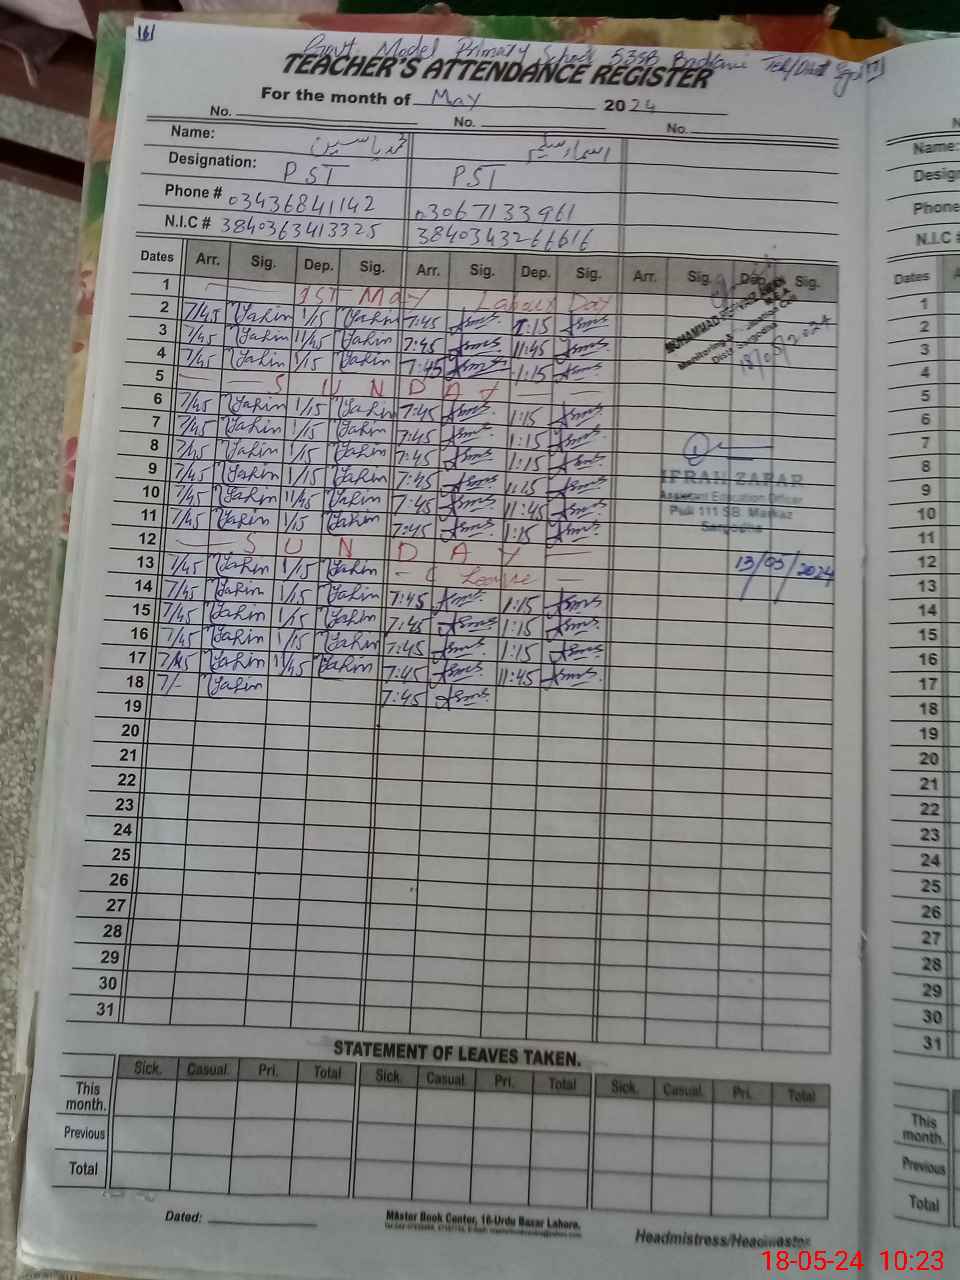 161
Govt. Model Primary School 53SB
TEACHER'S ATTENDANCE REGISTER
For the month of May 2024
No. No. No.
Name: محمد یاسین اسماء سلیم
Designation: PST PST
Phone # 03436841142 03067133961
N.I.C # 3840363413325 3840343266616
Dates Arr. Sig. Dep. Sig. Arr. Sig. Dep. Sig. Arr. Sig. Dep. Sig.
1 1ST May Labour Day
2 7/45 Yasin 1/15 Yasin 7:45 Asma 1:15 Asma
3 7/45 Yasin 11/45 Yasin 7:45 Asma 11:45 Asma
4 7/45 Yasin 1/15 Yasin 7:45 Asma 1:15 Asma
5 SUNDAY
6 7/45 Yasin 1/15 Yasin 7:45 Asma 1:15 Asma
7 7/45 Yasin 1/15 Yasin 7:45 Asma 1:15 Asma
8 7/45 Yasin 1/15 Yasin 7:45 Asma 1:15 Asma
9 7/45 Yasin 1/15 Yasin 7:45 Asma 1:15 Asma
10 7/45 Yasin 11/45 Yasin 7:45 Asma 11:45 Asma
11 7/45 Yasin 1/15 Yasin 7:45 Asma 1:15 Asma
12 SUNDAY
13 7/45 Yasin 1/15 Yasin C Leave
14 7/45 Yasin 1/15 Yasin 7:45 Asma 1:15 Asma
15 7/45 Yasin 1/15 Yasin 7:45 Asma 1:15 Asma
16 7/45 Yasin 1/15 Yasin 7:45 Asma 1:15 Asma
17 7/45 Yasin 11/45 Yasin 7:45 Asma 11:45 Asma
18 7/- Yasin 7:45 Asma
19
20
21
22
23
24
25
26
27
28
29
30
31
MUHAMMAD
M.E.A
Monitoring & Evaluation Cell
Distt. Sargodha
18/05/2024
IFRAH ZAFAR
Assistant Education Officer
Pull 111 SB Markaz
Sargodha
13/05/2024
STATEMENT OF LEAVES TAKEN.
Sick. Casual. Pri. Total Sick. Casual. Pri. Total Sick. Casual. Pri. Total
This month.
Previous
Total
Dated:
Master Book Center, 16-Urdu Bazar Lahore.
Headmistress/Headmaster
Name:
Phone
N.I.C #
Dates
1
2
3
4
5
6
7
8
9
10
11
12
13
14
15
16
17
18
19
20
21
22
23
24
25
26
27
28
29
30
31
This month.
Previous
Total
18-05-24 10:23